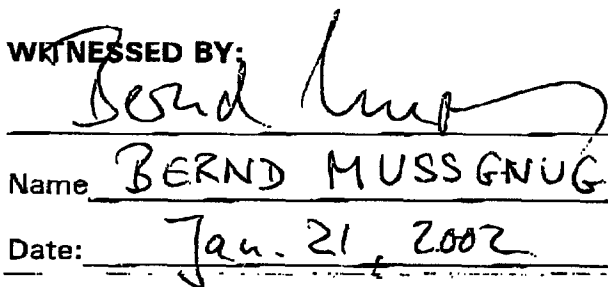 WITNESSED BY:
Bernd
Name BERND MUSSGNUG
Date: Jan. 21, 2002